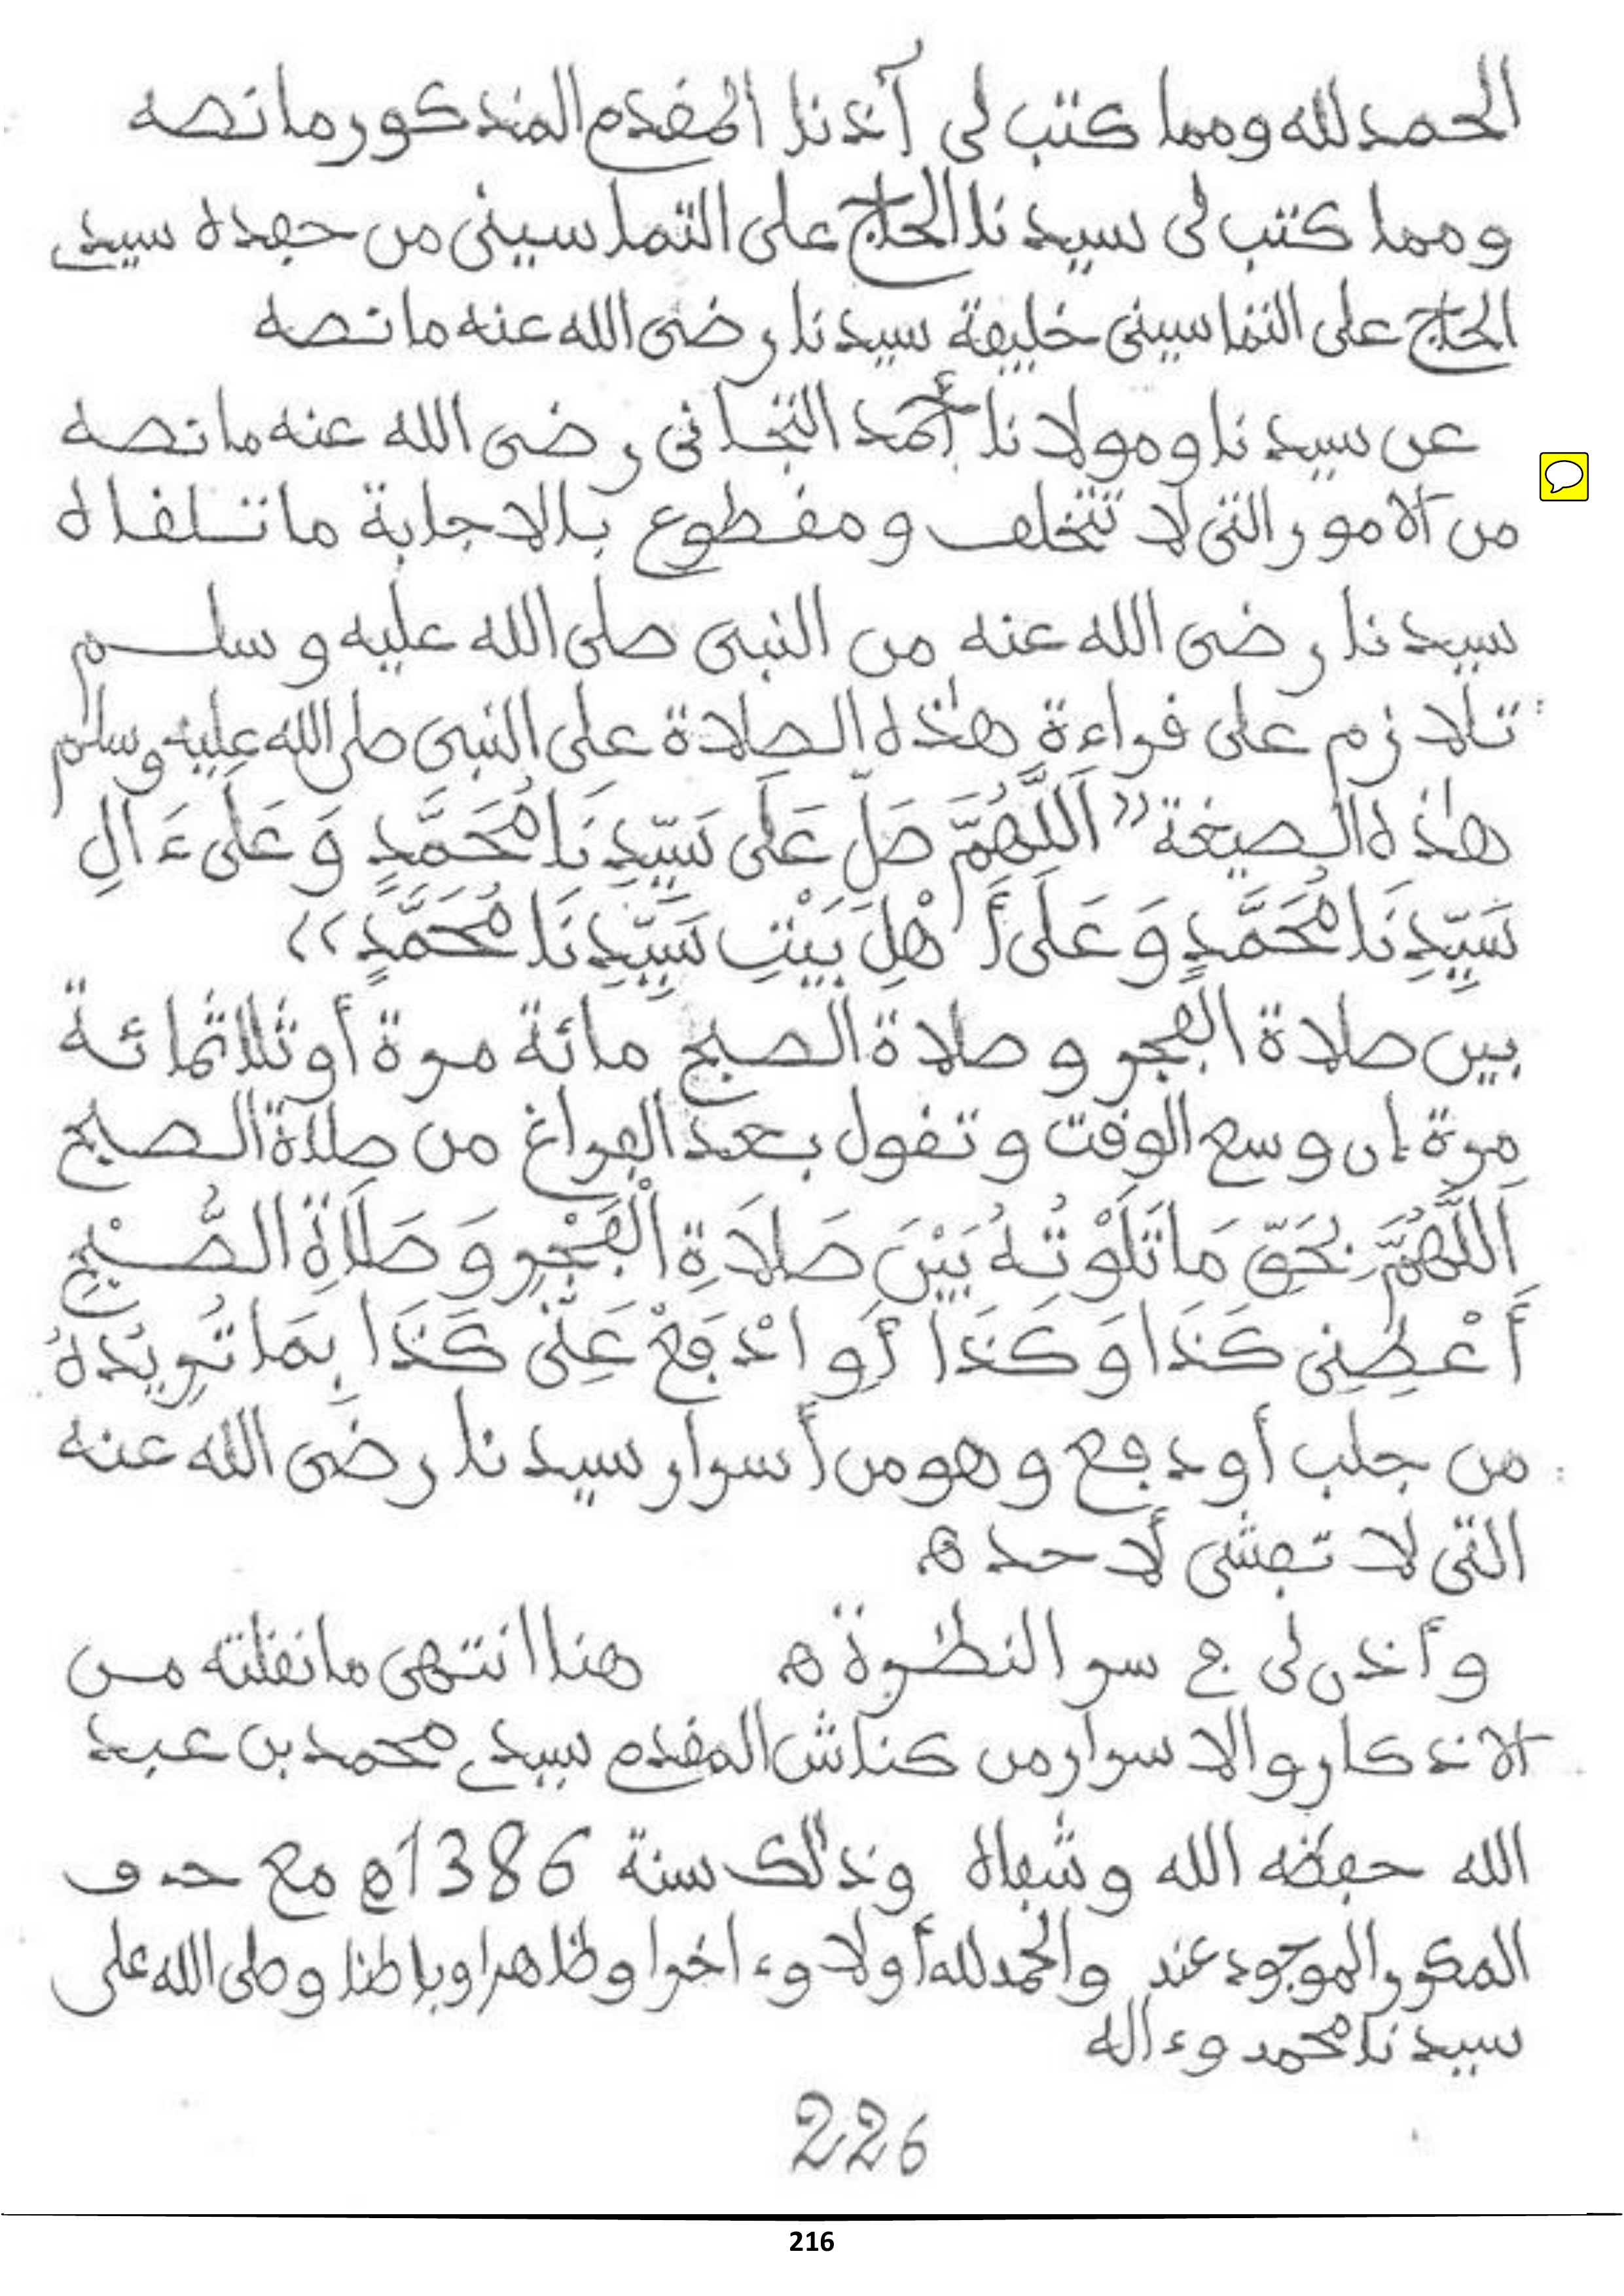 الحمد لله ومما كتب لى آذنا المقدم المذكور ما نصه
ومما كتب لى سيدنا الحاج على التماسينى من حفدة سيدى
الحاج على التماسينى خليفة سيدنا رضى الله عنه ما نصه
عن سيدنا ومولانا أحمد التجانى رضى الله عنه ما نصه
من الامور التى لا تتخلف ومقطوع بالاجابة ما تلقاه
سيدنا رضى الله عنه من النبى صلى الله عليه وسلم
تلازم على قراءة هذه الصلاة على النبى صلى الله عليه وسلم
هذه الصيغة « اَللَّهُمَّ صَلِّ عَلَى سَيِّدِنَا مُحَمَّدٍ وَعَلَى ءَالِ
سَيِّدِنَا مُحَمَّدٍ وَعَلَى أَهْلِ بَيْتِ سَيِّدِنَا مُحَمَّدٍ »
بين صلاة الفجر وصلاة الصبح مائة مرة أو ثلاثمائة
مرة إن وسع الوقت وتقول بعد الفراغ من صلاة الصبح
اَللَّهُمَّ بِحَقِّ مَا تَلَوْتُهُ بَيْنَ صَلَاةِ الْفَجْرِ وَصَلَاةِ الصُّبْحِ
أَعْطِنِى كَذَا وَكَذَا أَوِ ادْفَعْ عَنِّى كَذَا بِمَا تُرِيدُهُ
من جلب أو دفع وهو من أسرار سيدنا رضى الله عنه
التى لا تفشى لأحد ه
وأذن لى ج سر النظرة ه هنا انتهى ما نقلته من
الاذكار والاسرار من كناش المقدم سيدى محمد بن عبد
الله حفظه الله وشفاه وذلك سنة 1386ه مع حذف
المكرر الموجود عند والحمد لله أولا وءاخرا وظاهرا وباطنا وصلى الله على
سيدنا محمد وءاله
226
216